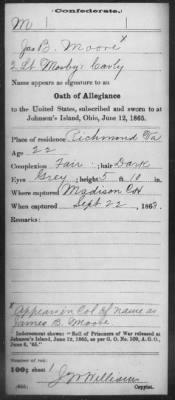 (Confederate.)
M 1 1
Jas B. Moore x
2 Lt Mosby's Cavly
Name appears as signature to an
Oath of Allegiance
to the United States, subscribed and sworn to at
Johnson's Island, Ohio, June 12, 1865.
Place of residence Richmond Va
Age 22
Complexion Fair ; hair Dark
Eyes Grey ; height 5 ft. 10 in.
Where captured Madison CoH
When captured Sept 22 , 1863.
Remarks:
x Appears in Col of name as
James B. Moore
Indorsement shows: "Roll of Prisoners of War released at
Johnson's Island, June 12, 1865, as per G. O. No. 109, A. G. O.,
June 6, '65."
Number of roll:
100; sheet 1
J W Williams
(655) Copyist.